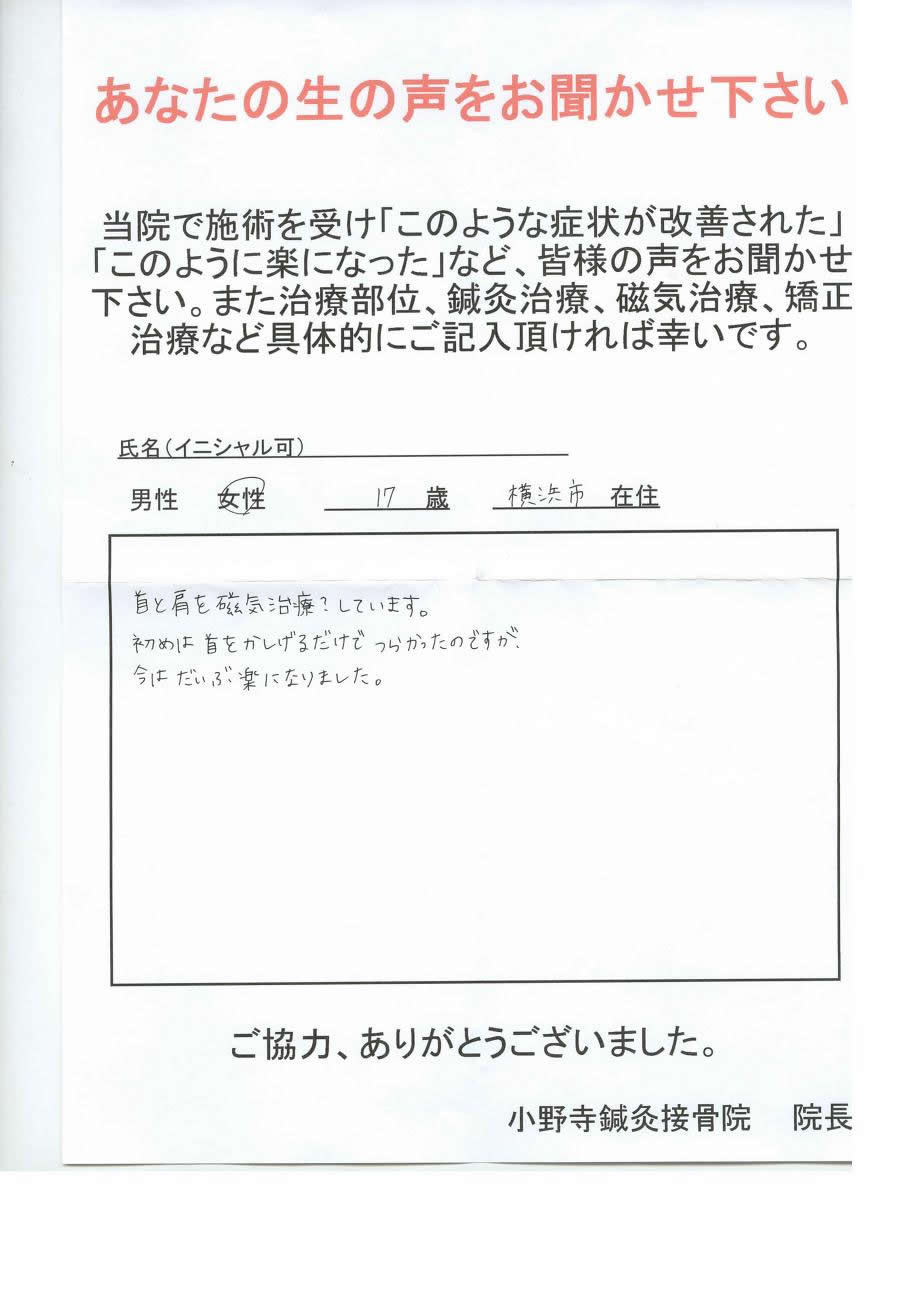 あなたの生の声をお聞かせ下さい
当院で施術を受け「このような症状が改善された」
「このように楽になった」など、皆様の声をお聞かせ
下さい。また治療部位、鍼灸治療、磁気治療、矯正
治療など具体的にご記入頂ければ幸いです。
氏名（イニシャル可）
男性 女性 17 歳 横浜市 在住
首と肩を磁気治療?しています。
初めは首をかしげるだけでつらかったのですが、
今はだいぶ楽になりました。
ご協力、ありがとうございました。
小野寺鍼灸接骨院 院長